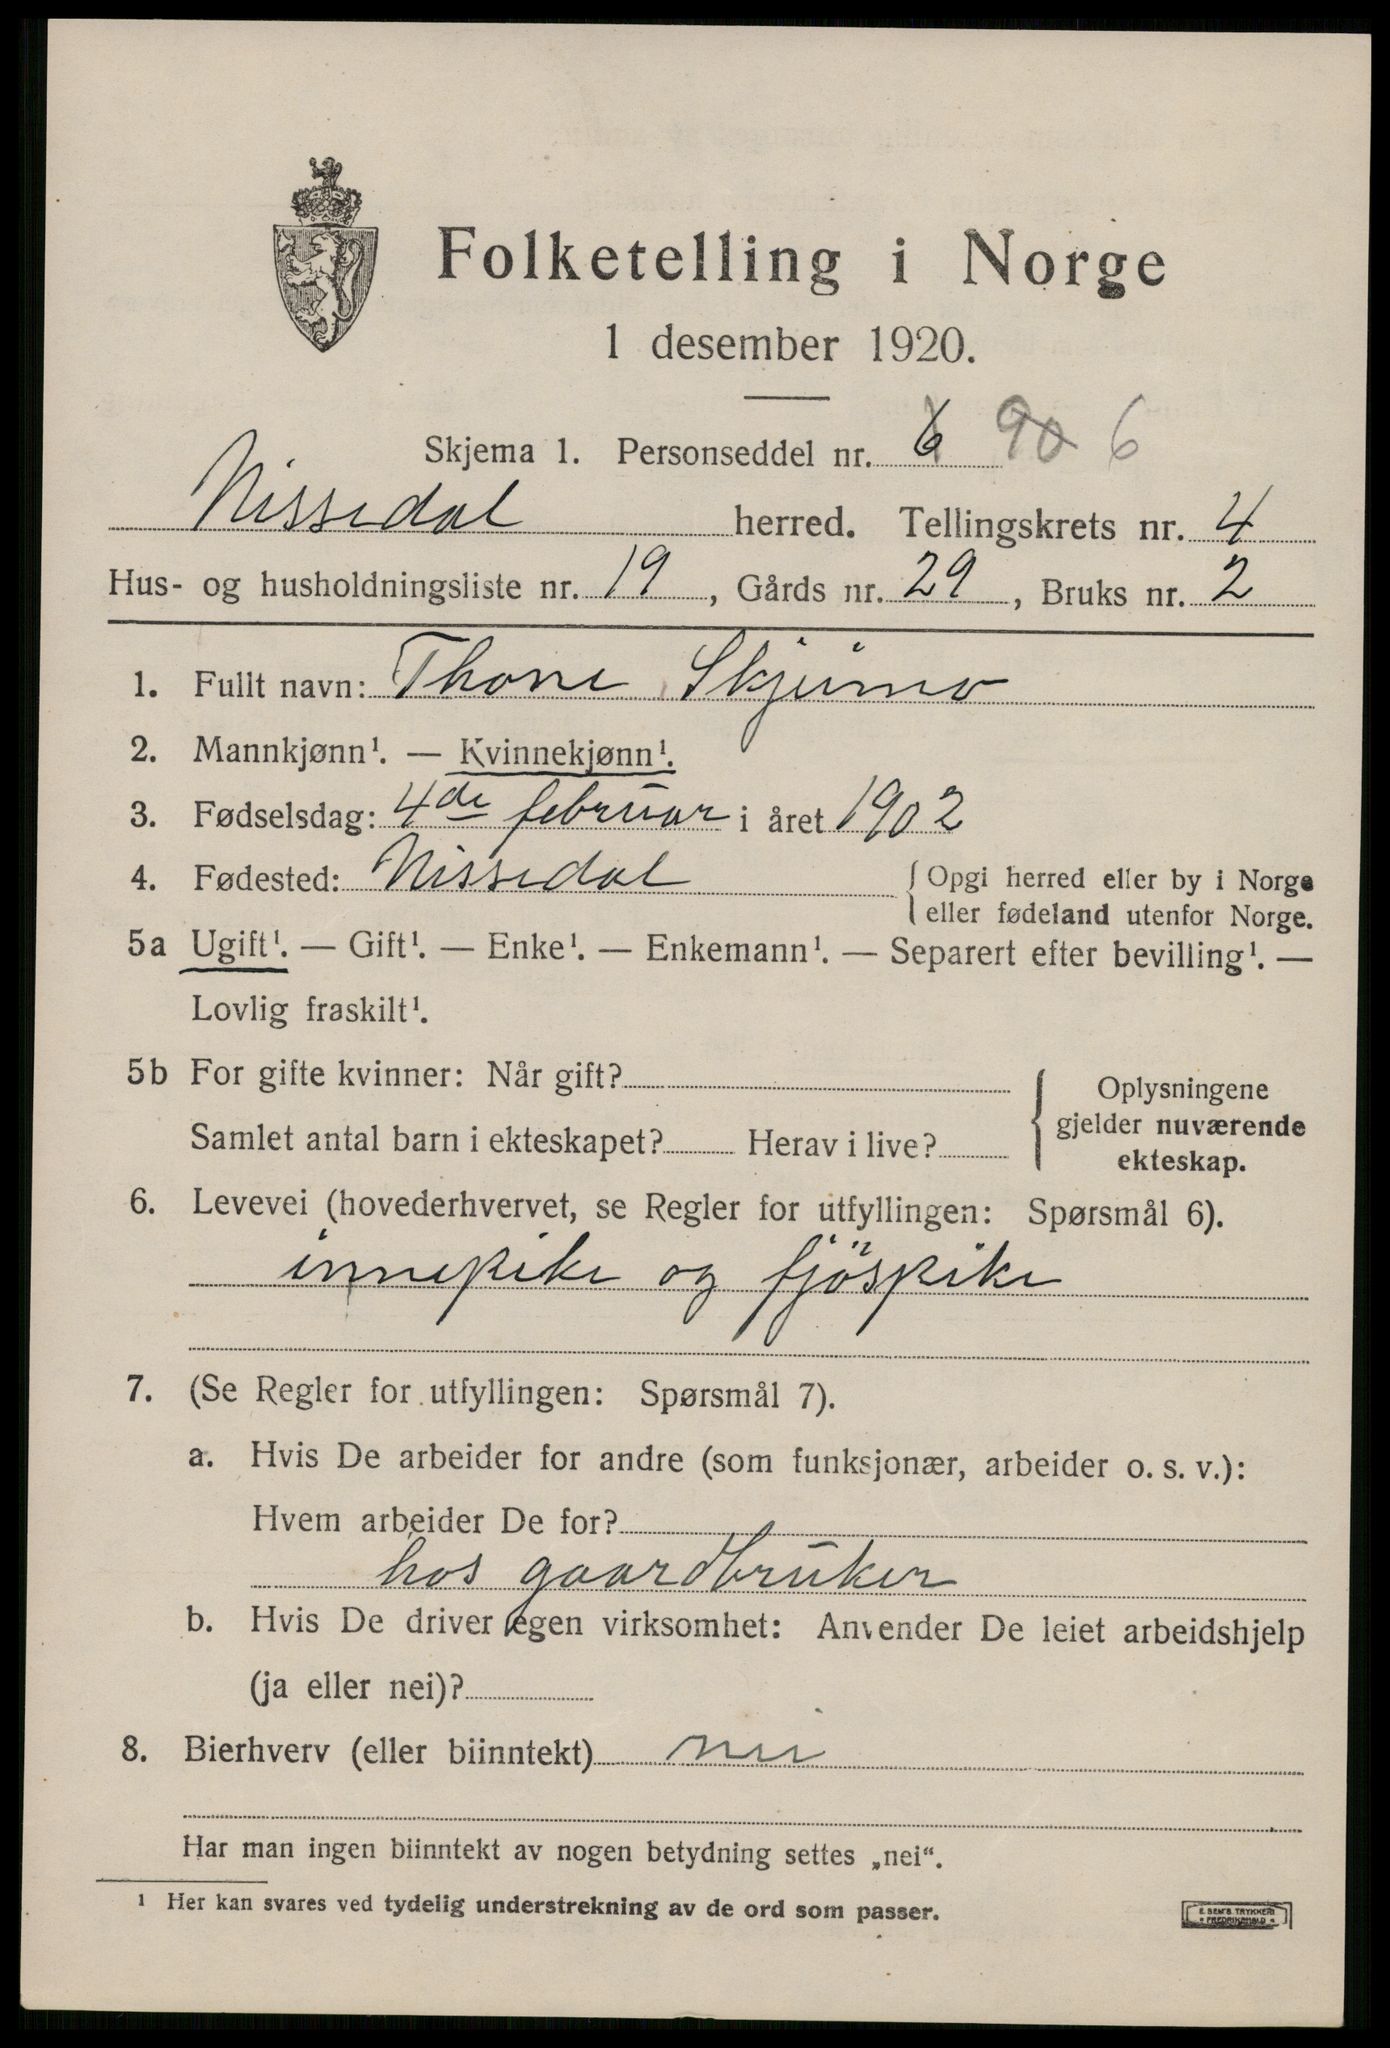 Folketelling i Norge
1 desember 1920.
Skjema 1. Personseddel nr. 6 90 6
Nissedal herred. Tellingskrets nr. 4
Hus- og husholdningsliste nr. 19, Gårds nr. 29, Bruks nr. 2
1. Fullt navn: Thone Skjeimo
2. Mannkjønn¹. — Kvinnekjønn¹.
3. Fødselsdag: 4de februar i året 1902
4. Fødested: Nissedal { Opgi herred eller by i Norge
eller fødeland utenfor Norge.
5a Ugift¹. — Gift¹. — Enke¹. — Enkemann¹. — Separert efter bevilling¹. —
Lovlig fraskilt¹.
5b For gifte kvinner: Når gift?
Samlet antal barn i ekteskapet? Herav i live?
Oplysningene
gjelder nuværende
ekteskap.
6. Levevei (hovederhvervet, se Regler for utfyllingen: Spørsmål 6).
innepike og fjöspike
7. (Se Regler for utfyllingen: Spørsmål 7).
a. Hvis De arbeider for andre (som funksjonær, arbeider o. s. v.):
Hvem arbeider De for?
hos gaardbruker
b. Hvis De driver egen virksomhet: Anvender De leiet arbeidshjelp
(ja eller nei)?
8. Bierhverv (eller biinntekt) nei
Har man ingen biinntekt av nogen betydning settes „nei“.
¹ Her kan svares ved tydelig understrekning av de ord som passer.
E. SEM'S TRYKKERI
FREDRIKSHALD